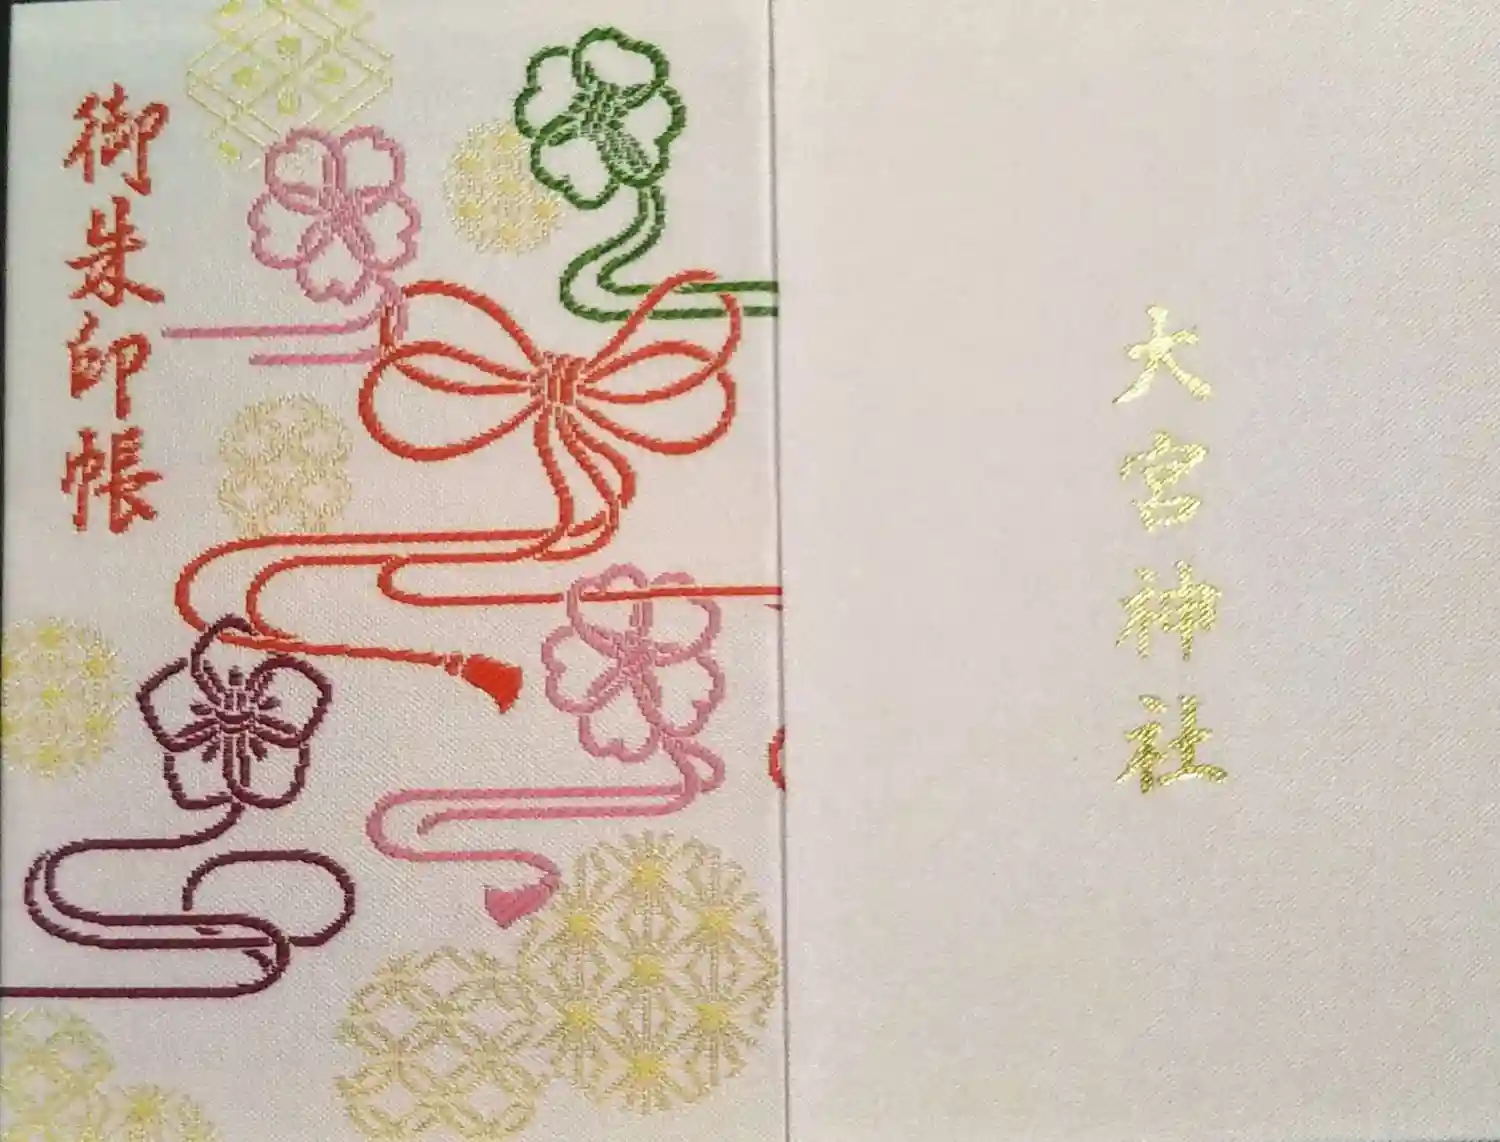 御朱印帳
大宮神社